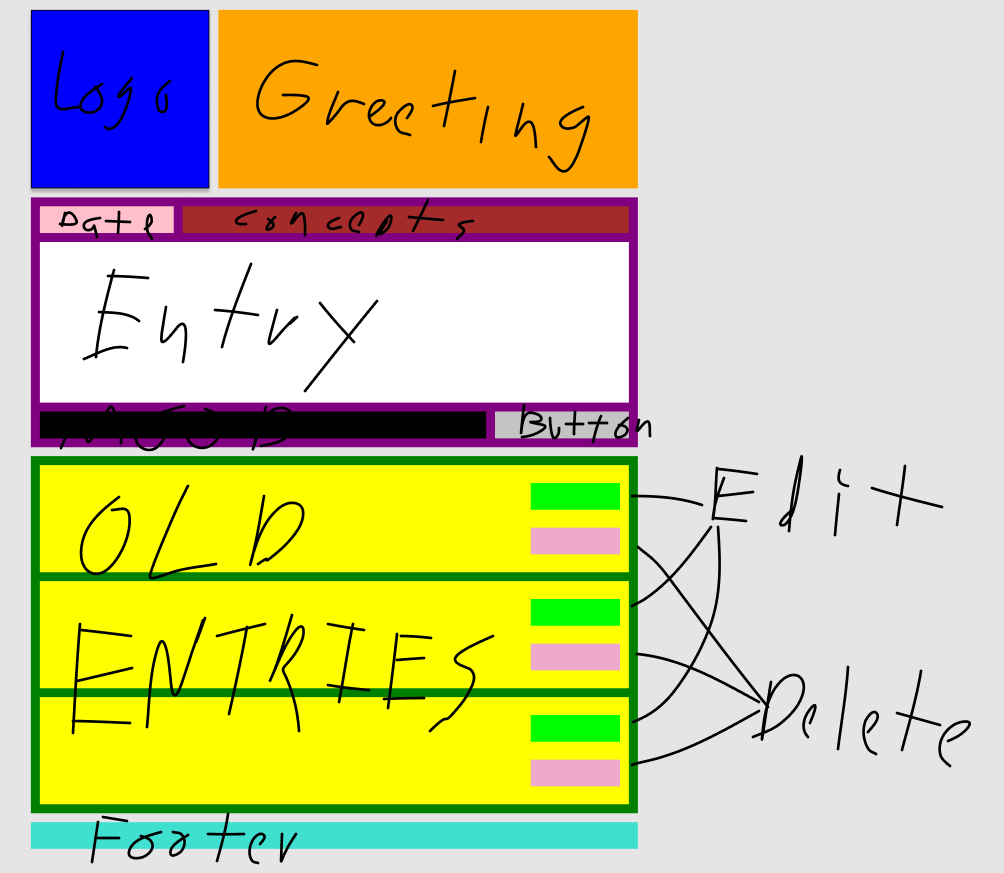 Logo
Greeting
Date
concepts
Entry
MOOD
Button
OLD
Edit
ENTRIES
Delete
Footer